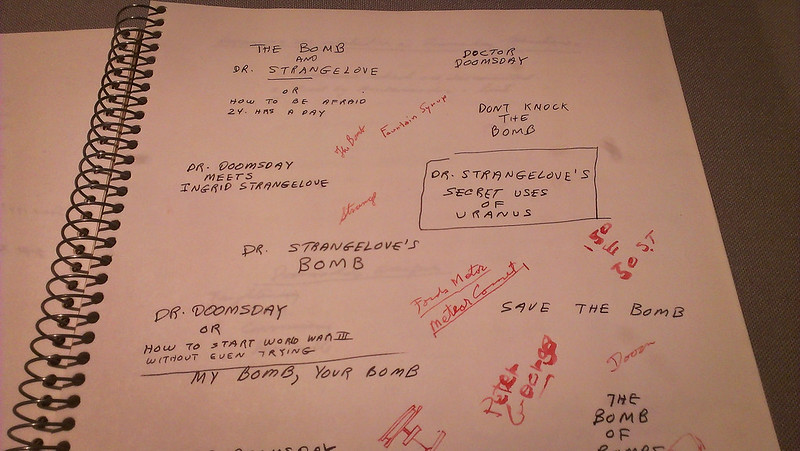 THE BOMB
AND
DR. STRANGELOVE
OR
HOW TO BE AFRAID
24 HRS A DAY
DOCTOR
DOOMSDAY
DONT KNOCK
THE
BOMB
The Bomb
Fountain Syrup
DR. DOOMSDAY
MEETS
INGRID STRANGELOVE
DR. STRANGELOVE'S
SECRET USES
OF
URANUS
DR. STRANGELOVE'S
BOMB
150
E
50 ST
Motor
Meteor
SAVE THE BOMB
DR. DOOMSDAY
OR
HOW TO START WORLD WAR III
WITHOUT EVEN TRYING
MY BOMB, YOUR BOMB
Peter
THE
BOMB
OF
DOOMSDAY